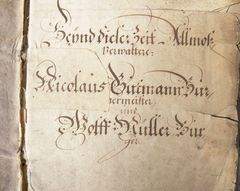 Seynd dieser Zeit Allmoß
Verwaltere:
Nicolaus Gutmann Bur
germeister
und
Wolff Müller Bür
ger.